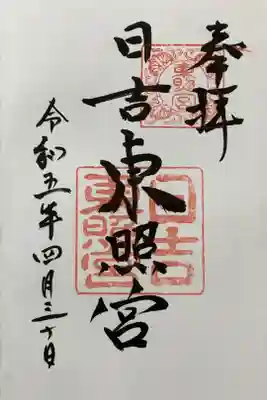 奉拝
日吉東照宮
令和五年四月三十日
東照宮
日吉
東照宮